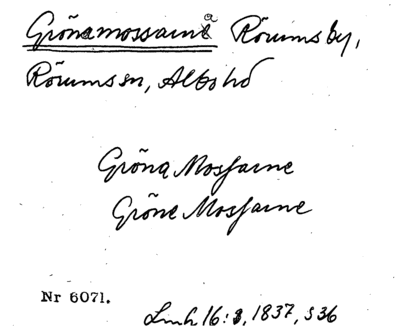 Grönamossarna Rörums by,
Rörums sn, Albo hd
Gröna Mossarne
Gröne Mossarne
Nr 6071.
Lmh 16:3, 1837, s 36